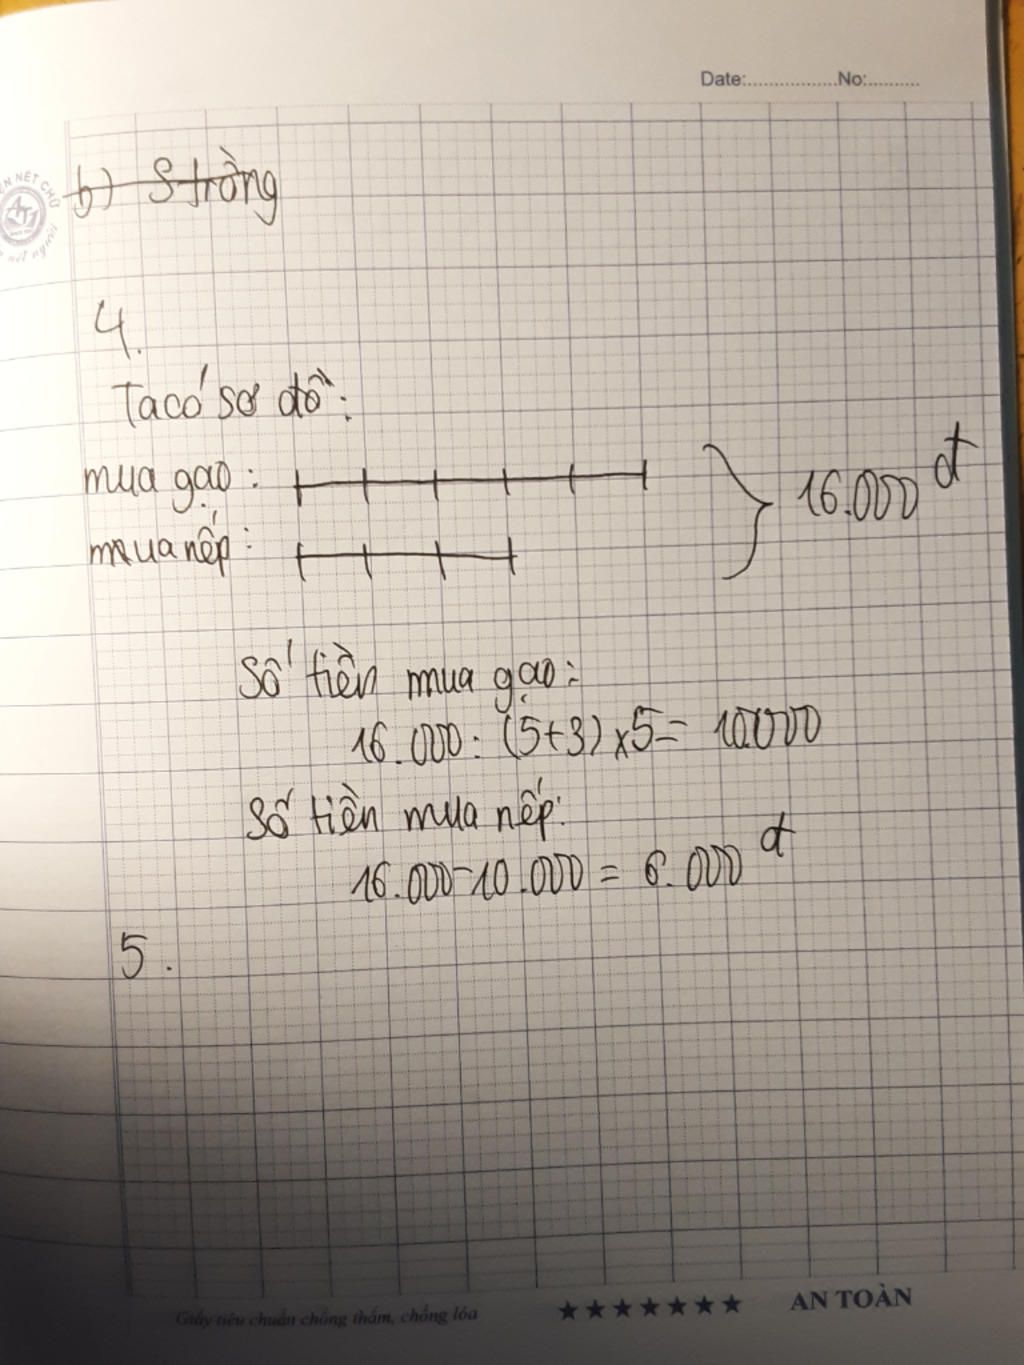 Date:.................No:..........
ÈN NÉT CHỮ
nét người
b) S trồng
4.
Ta có sơ đồ:
mua gạo:
16.000 đ
mua nếp:
Số tiền mua gạo:
16.000: (5+3) x5= 10.000
Số tiền mua nếp:
16.000-10.000 = 6.000 đ
5.
Giấy tiêu chuẩn chống thấm, chống lóa
★★★★★★★ AN TOÀN